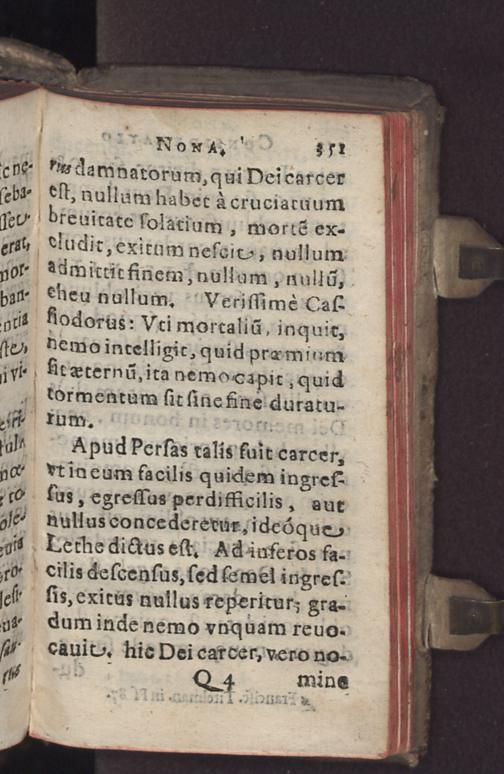 NONA. 351
rius damnatorum, qui Dei carcer
est, nullum habet à cruciatuum
breuitate solatium, mortē ex-
cludit, exitum nescit, nullum
admittit finem, nullum, nullū,
eheu nullum. Verissimè Cas-
siodorus: Vti mortaliū, inquit,
nemo intelligit, quid præmium
sit æternū, ita nemo capit, quid
tormentum sit sine fine duratu-
rum.
Apud Persas talis fuit carcer,
vt in eum facilis quidem ingres-
sus, egressus perdifficilis, aut
nullus concederetur, ideóque
Lethe dictus est. Ad inferos fa-
cilis descensus, sed semel ingres-
sis, exitus nullus reperitur; gra-
dum inde nemo vnquam reuo-
cauit. hic Dei carcer, vero no-
Q 4 mine